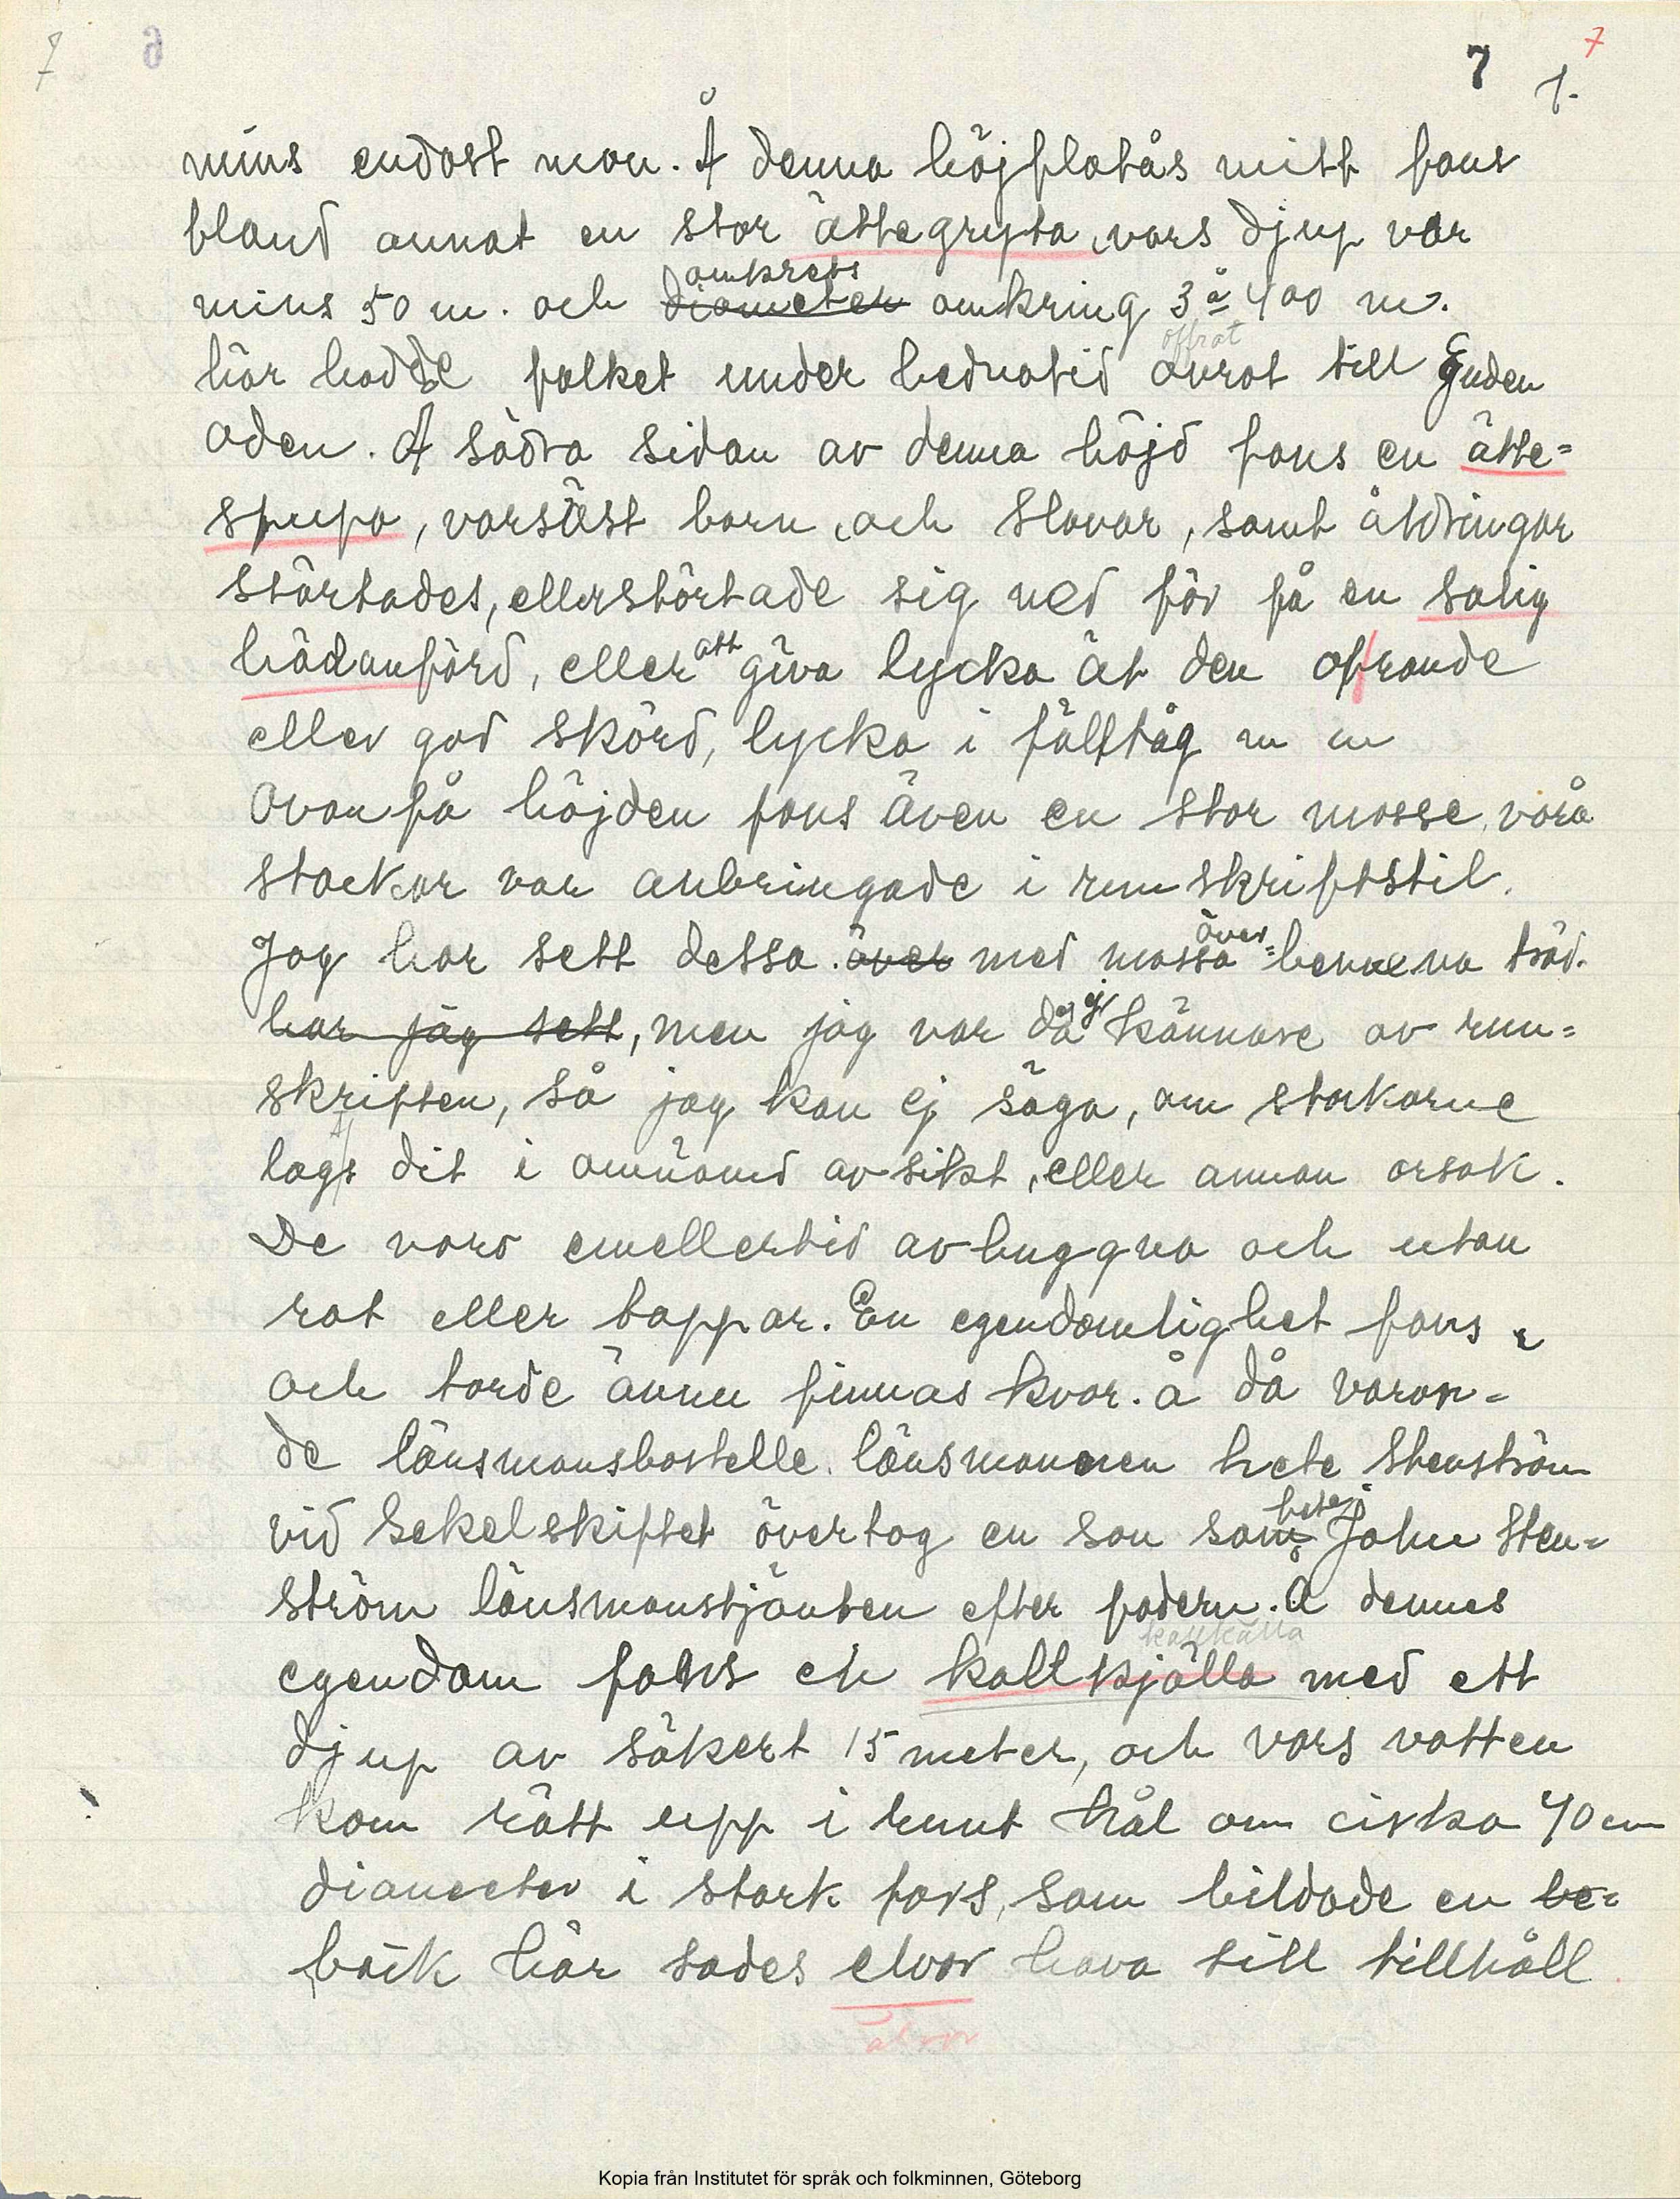 7 6 7 7
7.
mins endast man. Å denna höjplatås mitt fans
bland annat en stor ättegryta, vars djup var
omkrets
mins 50 m. och diameter omkring 3 à 400 m.
offrat
här hadde folket under hednatid ovrat till Guden
oden. Å södra sidan av denna höjd fans en ätte=
spupa, varsäst barn, och slavar, samt åldringar
störtades, eller störtade sig ned för få en salig
hädanförd, eller att giva lycka åt den ofrande
eller god skörd, lycka i fälttåg m m
Ovan på höjden fans även en stor mosse, vårå
stockar var anbringade i runskriftstil.
över
Jag har sett dessa. över med mossa =benvena träd.
har jag sett, men jag var då ej kännare av run=
skriften, så jag kan ej säga, om stockarne
lags dit i omnämd avsikt, eller annan orsak.
De voro emellertid avhuggna och utan
rot eller toppar. En egendomlighet fans,
och torde ännu finnas kvar. å då varan=
de länsmansbostelle. länsmannen hete Stenström
vid Sekelskiftet övertog en son som hete John Sten=
ström länsmanstjänten efter fadern. Å dennes
kallkälla
egendom fans en kallkjälla med ett
djup av säkert 15 meter, och vars vatten
kom rätt upp i runt hål om cirka 40 cm
diameter i stark fors, som bildade en be=
bäck här sades elvor hava till tillhåll
älvor
Kopia från Institutet för språk och folkminnen, Göteborg